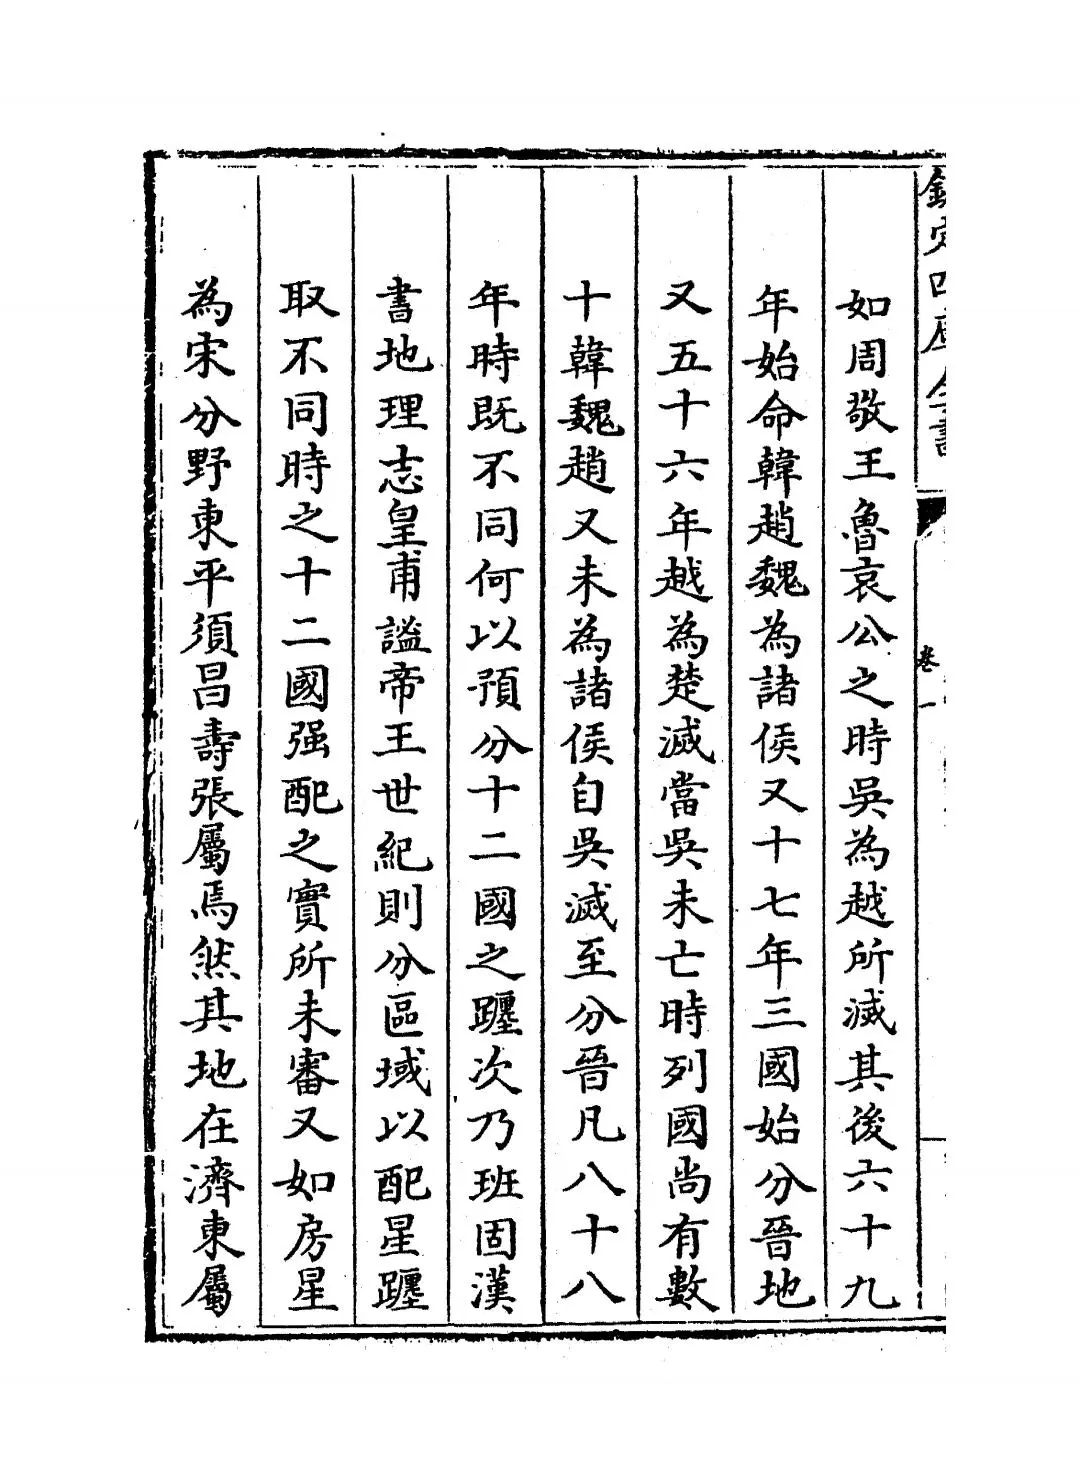 欽定四庫全書
卷一
如周敬王魯哀公之時吳為越所滅其後六十九
年始命韓趙魏為諸侯又十七年三國始分晉地
又五十六年越為楚滅當吳未亡時列國尚有數
十韓魏趙又未為諸侯自吳滅至分晉凡八十八
年時既不同何以預分十二國之躔次乃班固漢
書地理志皇甫謐帝王世紀則分區域以配星躔
取不同時之十二國强配之實所未審又如房星
為宋分野東平須昌壽張屬焉然其地在濟東屬